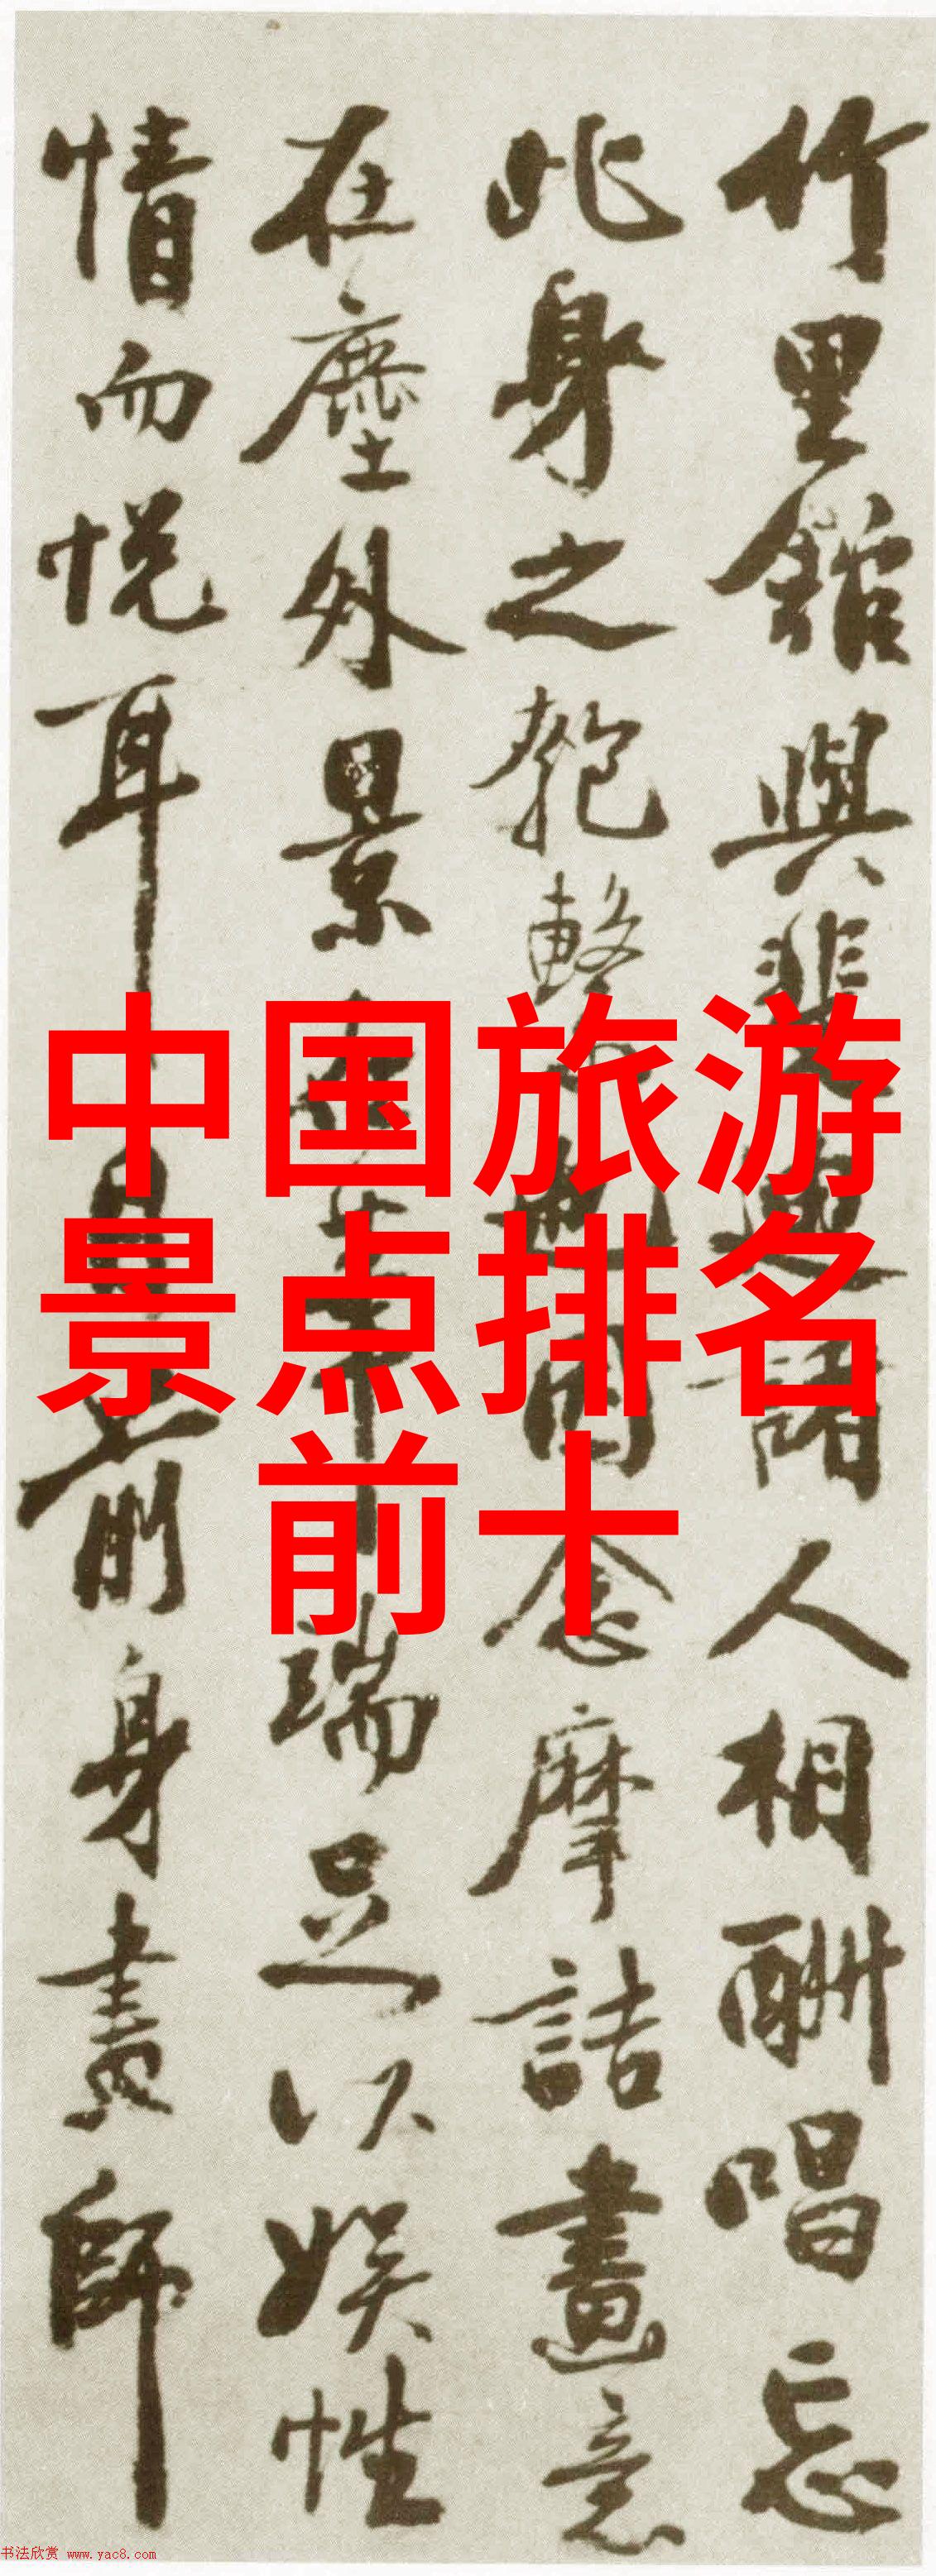 中国旅游
景点排名
前十
竹里館與裴迪諸人相酬唱忘
此身之匏念摩詰畫意
在塵外景端足以娛性
情而悅耳前身畫師
书法欣赏 www.yac8.com